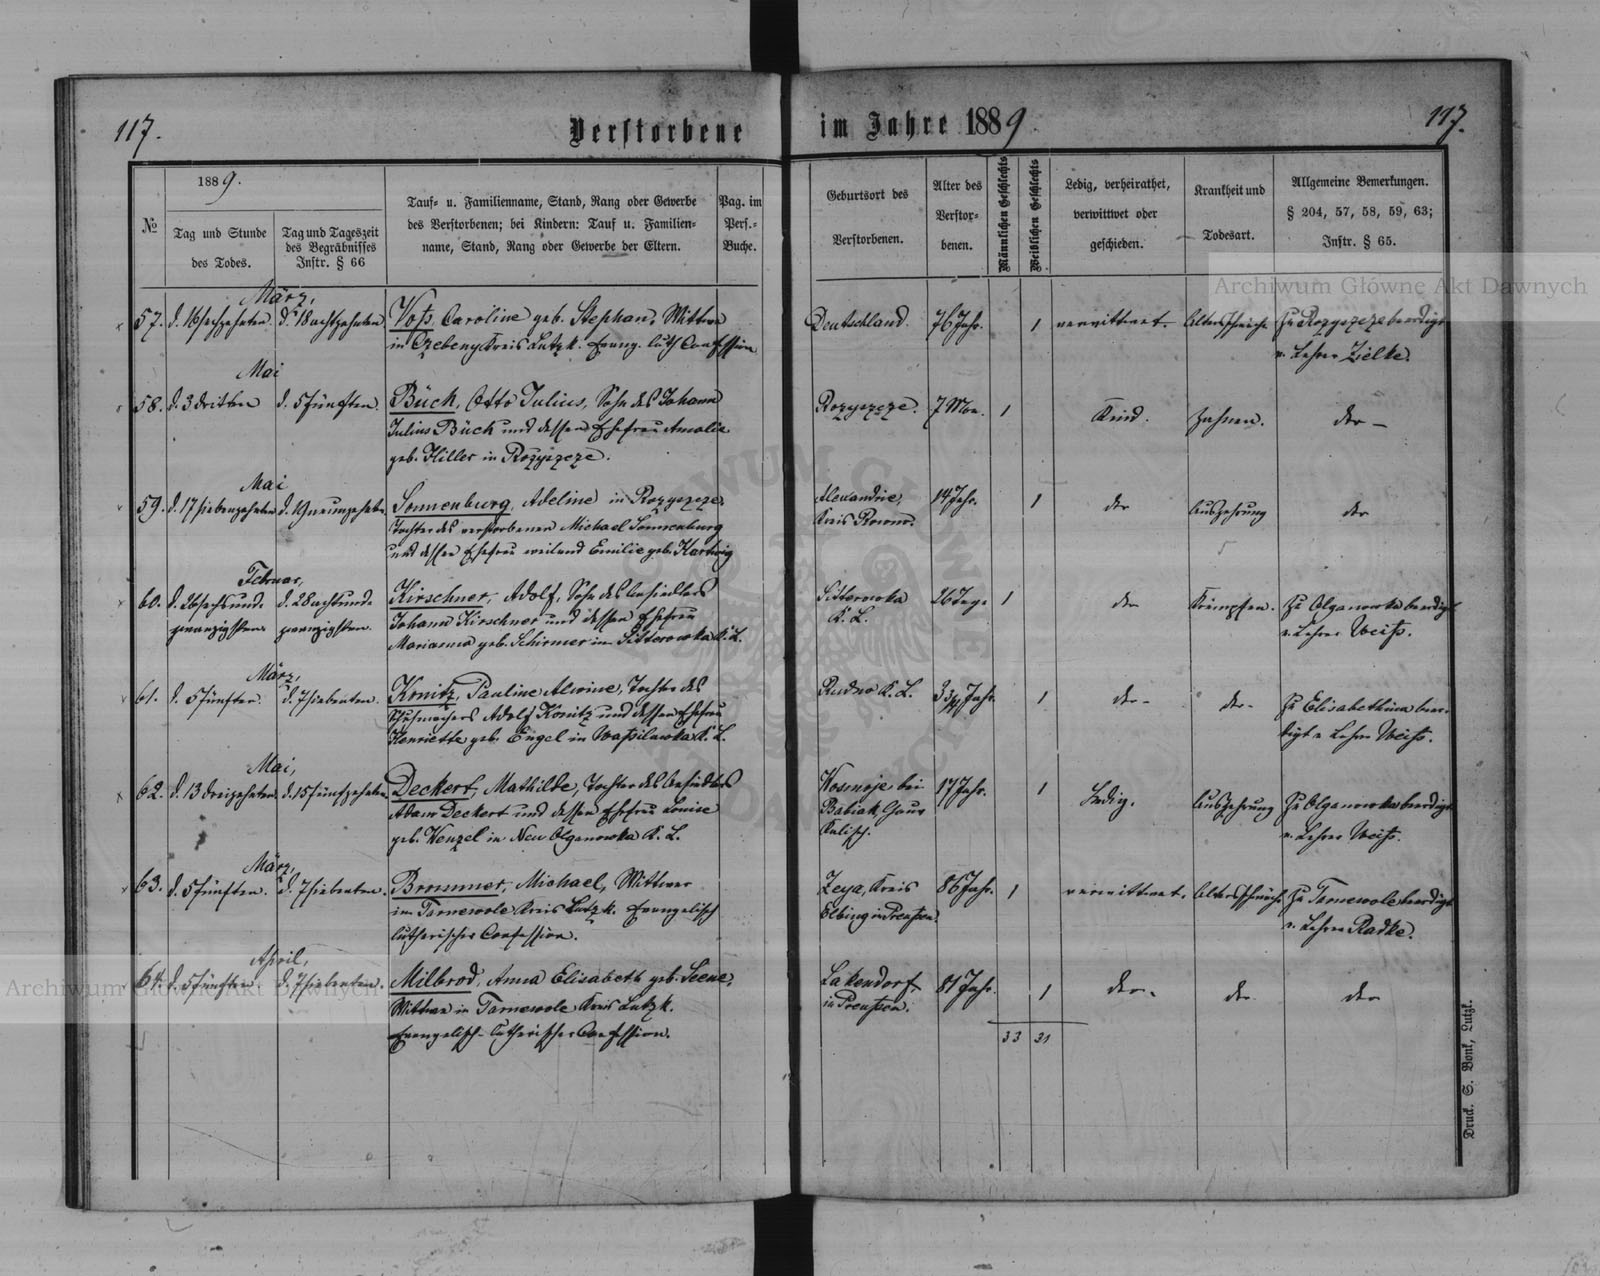 117.
Verstorbene
im Jahre 1889.
117.
№
1889.
Tag und Stunde
des Todes.
Tag und Tageszeit
des Begräbnisses
Instr. § 66
Tauf- u. Familienname, Stand, Rang oder Gewerbe
des Verstorbenen; bei Kindern: Tauf u. Familien-
name, Stand, Rang oder Gewerbe der Eltern.
Pag. im
Pers.-
Buche.
Geburtsort des
Verstorbenen.
Alter des
Verstor-
benen.
Männlichen Geschlechts
Weiblichen Geschlechts
Ledig, verheirathet,
verwittwet oder
geschieden.
Krankheit und
Todesart.
Allgemeine Bemerkungen.
§ 204, 57, 58, 59, 63;
Instr. § 65.
März,
57. d. 16 sechzehnten. d. 18 achtzehnten.
Voß, Caroline geb. Stephan, Wittwe
in Kreis Lutzk. Evang. luth Confession
Deutschland. 76 Jahr. 1 verwittwet. Altersschwäche Zu Rozyszcze beerdigt
v. Lehrer Zielke.
Mai
58. d. 3 dritten d. 5 fünften.
Büch, Otto Julius, Sohn des Johann
Julius Büch und dessen Ehefrau Amalie
geb. Hiller in Rozyszcze.
Rozyszcze. 7 Mon. 1 Kind. Zahnen. der-
Mai
59. d. 17 siebenzehnten d. 19 neunzehnten
Sonnenburg, Adeline in Rozyszcze,
Tochter des verstorbenen Michael Sonnenburg
und dessen Ehefrau weiland Emilie geb. Hartwig
Alexandrie,
Kreis Rowno.
14 Jahr. 1 der Auszehrung der
Februar,
60. d. 26 sechsund-
zwanzigsten
d. 28 achtund-
zwanzigsten.
Kirschner, Adolf, Sohn des Ansiedlers
Johann Kirschner und dessen Ehefrau
Marianna geb. Schirmer in K. L.
K. L.
26 Tage 1 der Krämpfen. Zu Olganowka beerdigt
v. Lehrer Weiß.
März,
61. d. 5 fünften. d. 7 siebenten.
Konitz, Pauline Alwine, Tochter des
Schumachers Adolf Konitz und dessen Ehefrau
Henriette geb. Engel in Waßilewka K. L.
Rudno K. L. 3 3/4 Jahr. 1 der- der- Zu Elisabethina beer-
digt v. Lehrer Weiß.
Mai,
62. d. 13 dreizehnten. d. 15 fünfzehnten.
Deckert, Mathilde, Tochter des Ansiedlers
Adam Deckert und dessen Ehefrau Louise
geb. Wenzel in Neu Olganowka K. L.
Kosmoje bei
Babiak, Gouv
Kalisch.
17 Jahr. 1 Ledig. Auszehrung Zu Olganowka beerdigt
v. Lehrer Weiß.
März,
63. d. 5 fünften. d. 7 siebenten.
Brommer, Michael, Wittwer
im Tarnewole Kreis Lutzk. Evangelisch
lutherischer Confession.
Zeya, Kreis
Elbing in Preußen.
86 Jahr. 1 verwittwet. Altersschwäche Zu Tarnewole beerdigt
v. Lehrer Radke.
April,
64. d. 5 fünften. d. 7 siebenten.
Milbrod, Anna Elisabeth geb. Leene,
Wittwe in Tarnewole Kreis Lutzk.
Evangelisch-Lutherischer Confession.
Lakendorf
in Preußen.
81 Jahr. 1 der. der der
33 31
Druck. S. Bonk, Lutzk.
Archiwum Główne Akt Dawnych
Archiwum Główne Akt Dawnych